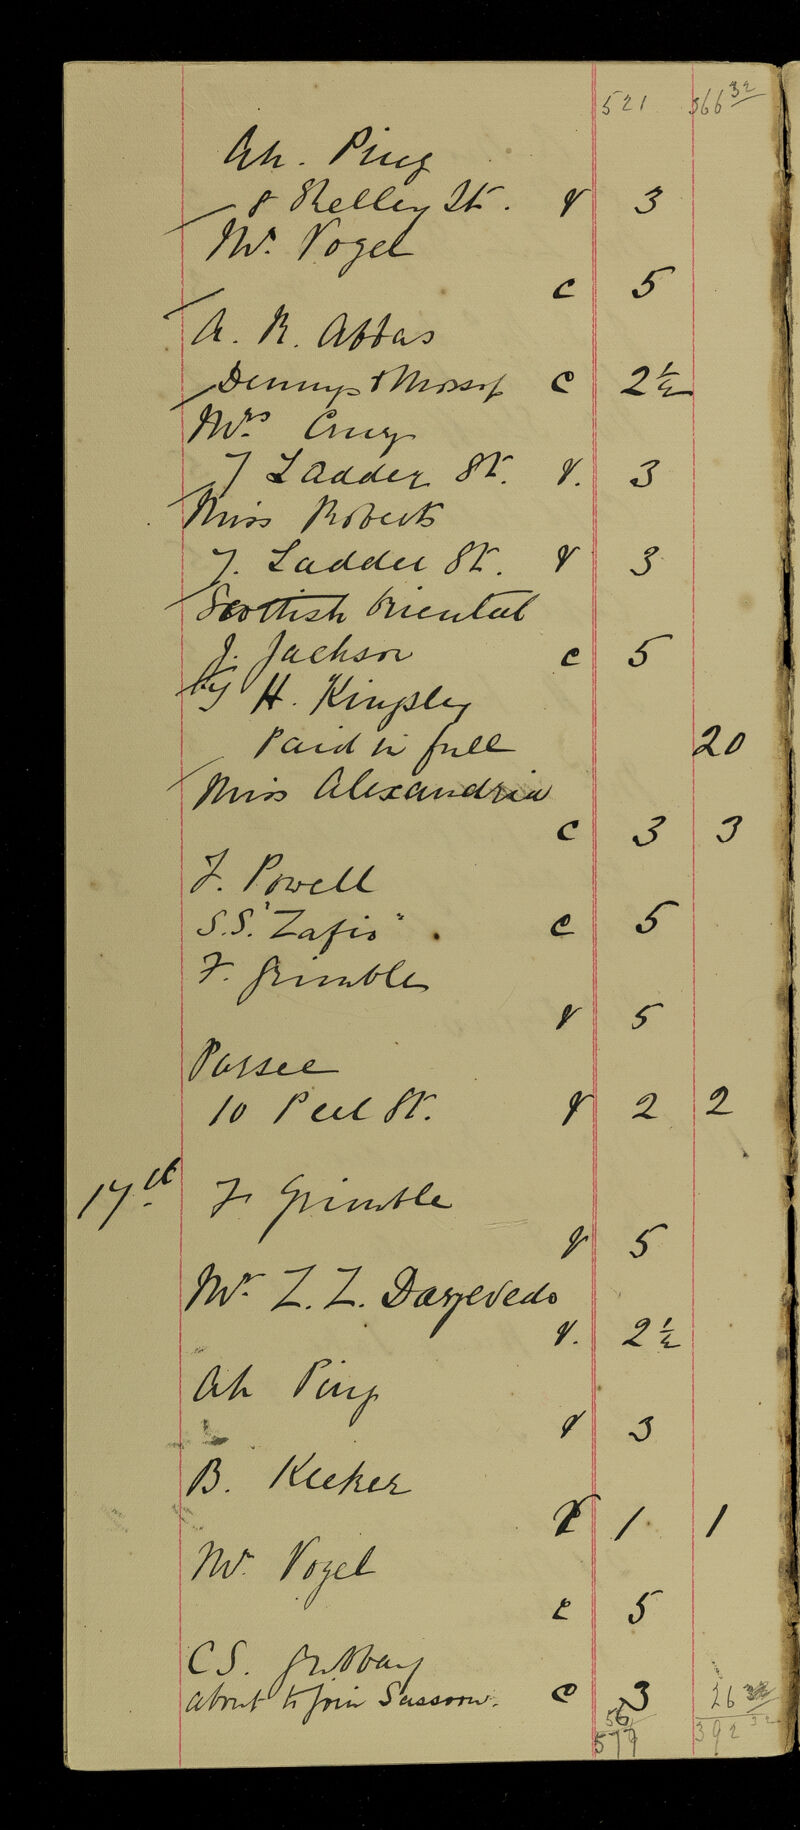 521 366 32
Ah. Ping
8 Shelley St. V 3
Mr. Vogel
c 5
A. R. Abbas
Dennys & Mossop c 2½
Mrs Cruz
7 Ladder St. V. 3
Miss Roberts
7. Ladder St. V 3
Scottish Oriental
J. Jackson c 5
by H. Kingsley
Paid in full 20
Miss Alexandria
c 3 3
F. Powell
S.S. "Zafio" c 5
F. Grimble
V 5
Parsee
10 Peel St. V 2 2
17th F. Grimble
V 5
Mr. Z. Z. Dazevedo
V. 2½
Ah Ping
V 3
B. Keeker
V 1 1
Mr. Vogel
c 5
C S. Gubbay
about to join Sassoon. c 3 26
56
577 392 32